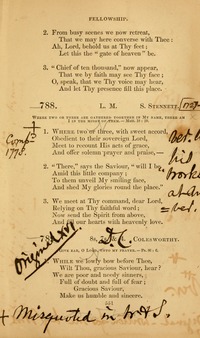 FELLOWSHIP.
2. From busy scenes we now retreat,
That we may here converse with Thee:
Ah, Lord, behold us at Thy feet;
Let this the "gate of heaven" be.
3. "Chief of ten thousand," now appear,
That we by faith may see Thy face;
O, speak, that Thy voice may hear,
And let Thy presence fill this place.
788. L. M. S. STENNETT.
WHERE TWO OR THREE ARE GATHERED TOGETHER IN MY NAME, THERE AM
I IN THE MIDST OF THEM.
1. WHERE two or three, with sweet accord,
Obedient to their sovereign Lord,
Meet to recount His acts of grace,
And offer solemn prayer and praise,—
2. "There," says the Saviour, "will I be,
Amid this little company;
To them unveil My smiling face,
And shed My glories round the place."
3. We meet at Thy command, dear Lord,
Relying on Thy faithful word;
Now send the Spirit from above,
And fill our hearts with heavenly love.
COLESWORTHY.
WHILE we lowly bow before Thee,
Wilt Thou, gracious Saviour, hear?
We are poor and needy sinners,
Full of doubt and full of fear;
Gracious Saviour,
Make us humble and sincere.
551
Original
+ Misquoted in